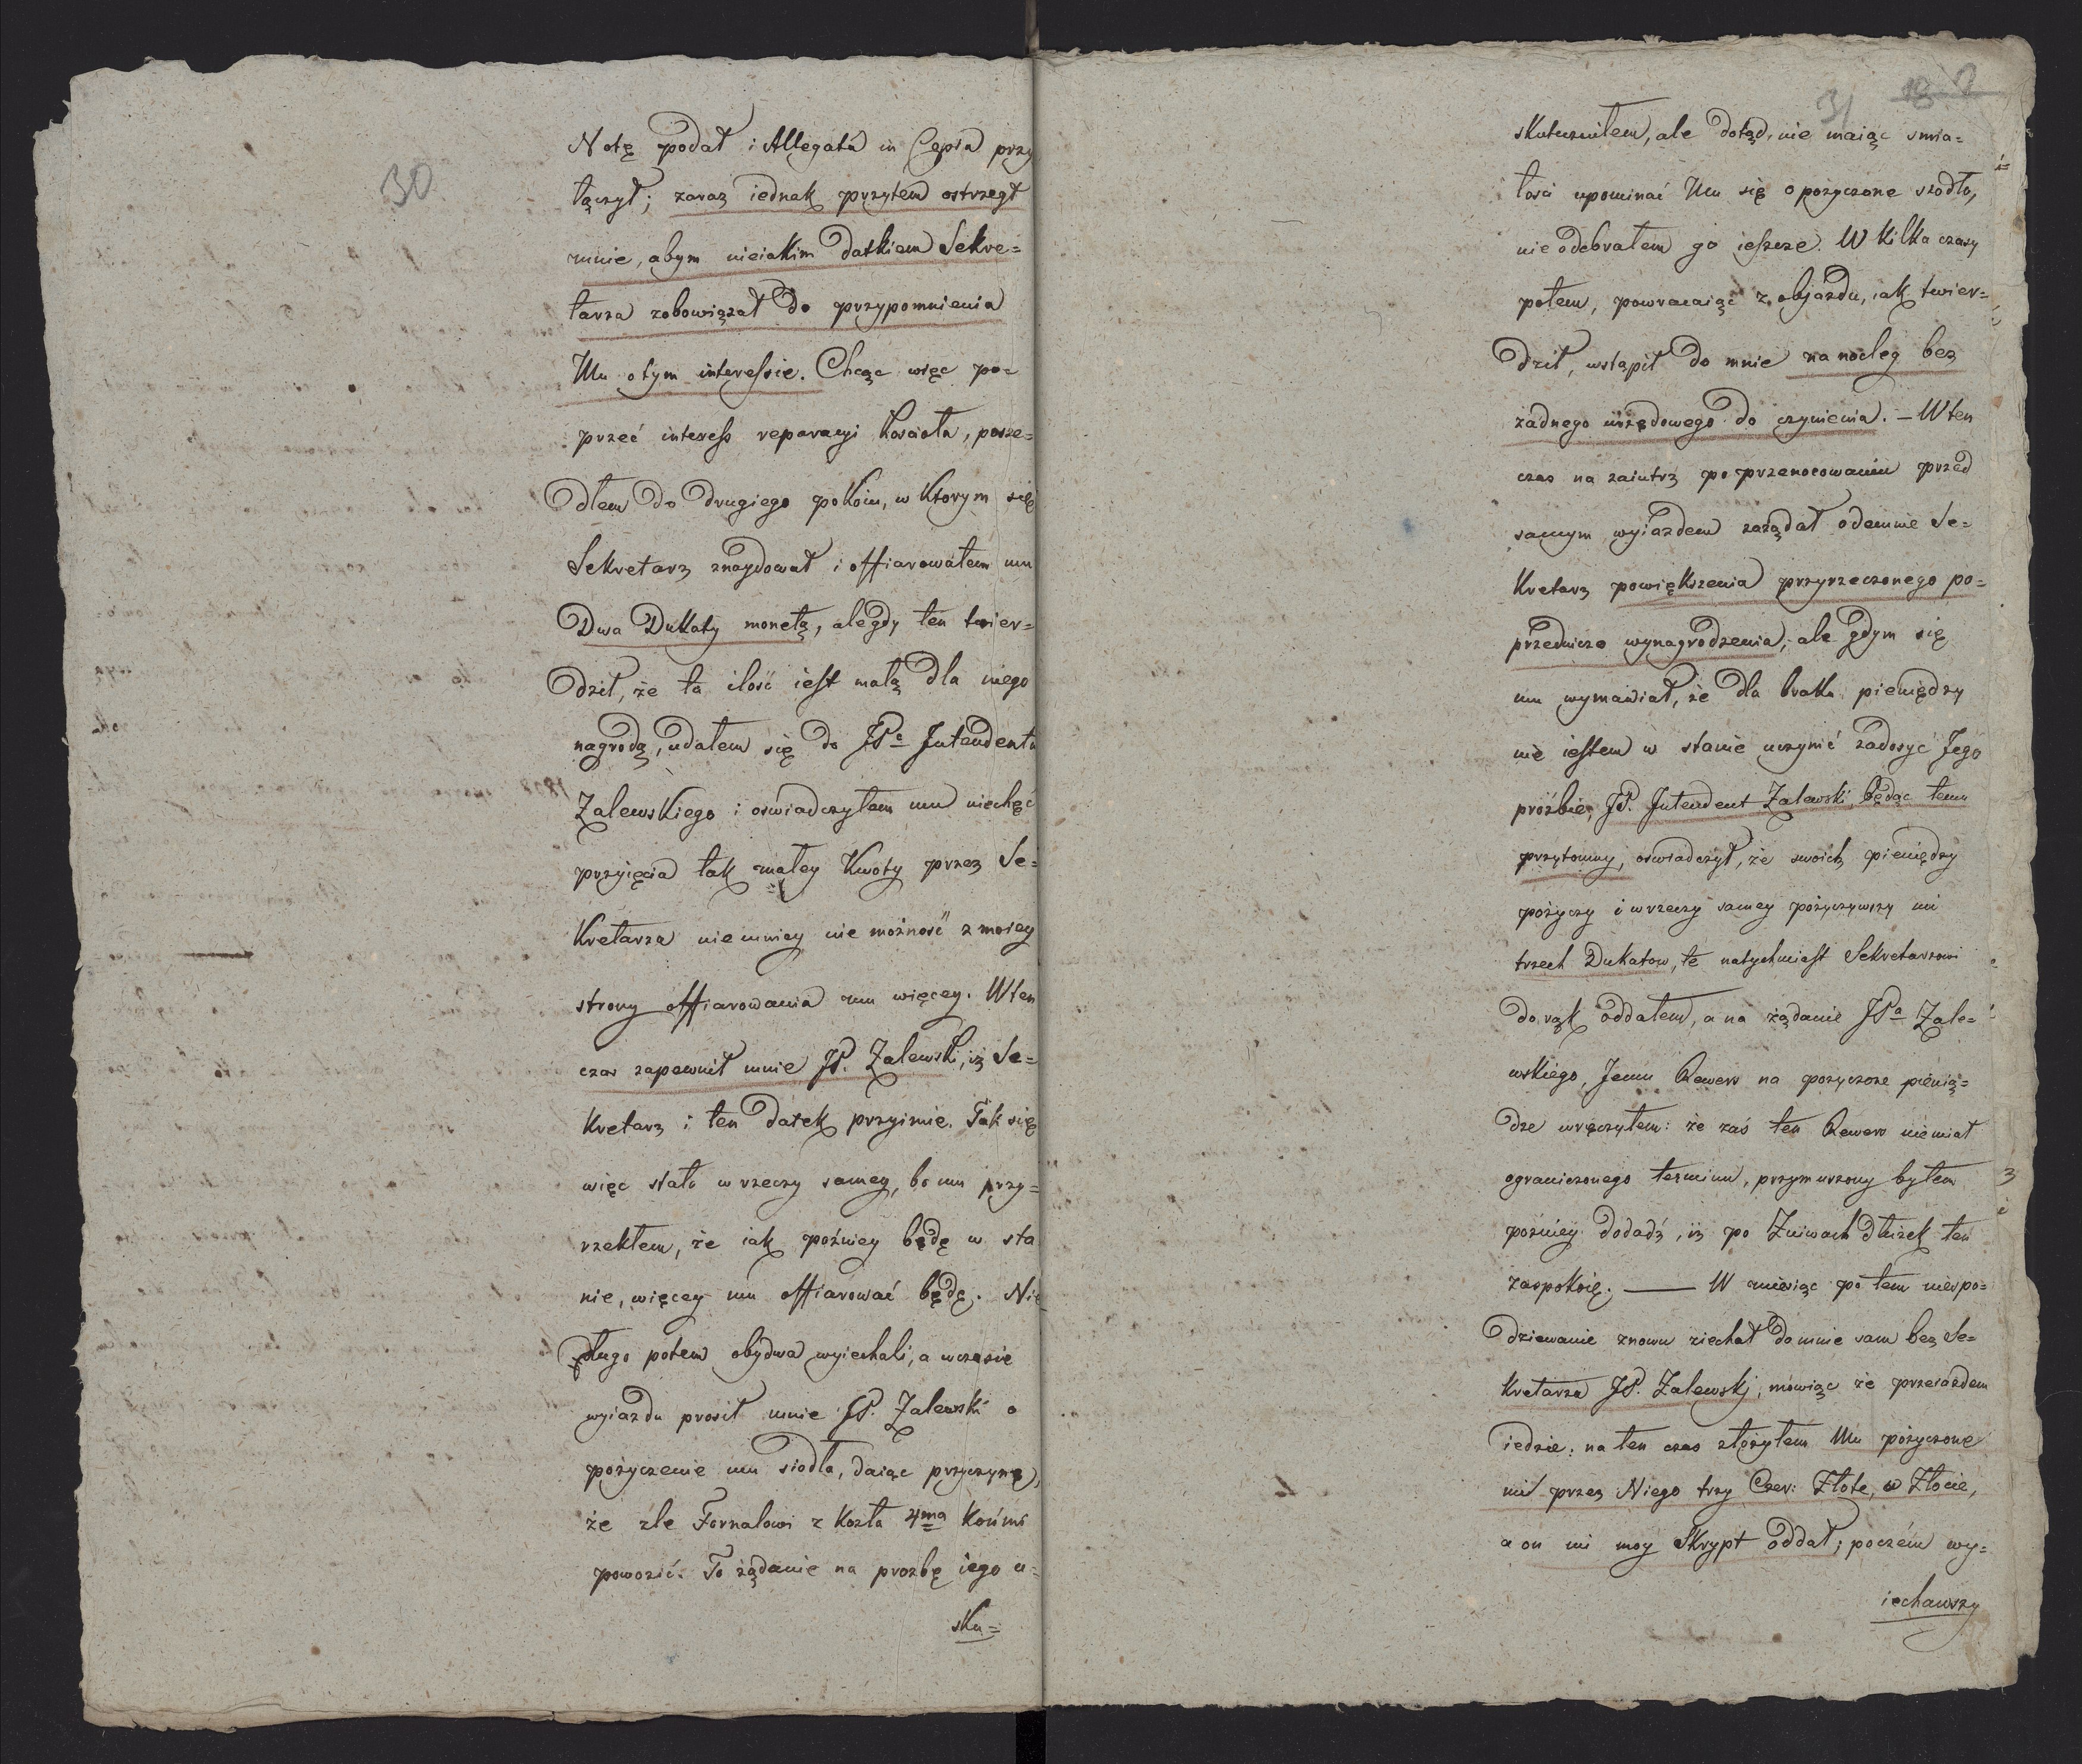 30
Notę podał i Allegata in Copia przy
łączył; zaraz iednak przytem ostrzegł
mnie, abym nieiakim datkiem Sekre=
tarza zobowiązał do przypomnienia
Mu o tym interessie. Chcąc więc po=
przeć interess reparacyi Kościoła, posze=
dłem do drugiego pokoiu, w ktorym się
Sekretarz znaydował i offiarowałem mu
Dwa Dukaty monetą, ale gdy ten twier=
dził, że ta ilość iest małą dla niego
nagrodą, udałem się do JPe Intendenta
Zalewskiego i oswiadczyłem mu niechęć
przyięcia tak małey Kwoty przez Se=
kretarza niemniey nie możność z moiey
strony offiarowania mu więcey. W ten
czas zapewnił mnie JP. Zalewski, iż Se=
kretarz i ten datek przyimie. Tak się
więc stało w rzeczy samey, bo mu przy=
rzekłem, że iak pożniey będę w sta
nie, więcey mu offiarować będę. Nie
długo potem obydwa wyiechali, a wczasie
wyiazdu prosił mnie JP. Zalewski o
pożyczenie mu siodła, daiąc przyczynę,
że zle Fornalowi z Kozła 4ma Końmi
powozić. To żądanie na prozbę iego u=
sku=
31 18 2
skuteczniłem, ale dotąd, nie maiąc smia=
łosci upominać Mu się o pożyczone siodło,
nie odebrałem go ieszcze. W kilka czasy
potem, powracaiąc z objazdu, iak twier=
dził, wstąpił do mnie na nocleg bez
żadnego urzędowego do czynienia. — W ten
czas na zaiutrz po przenocowaniu przed
samym wyiazdem zażądał odemnie Se=
kretarz powiększenia przyrzeczonego po=
przedniczo wynagrodzenia, ale gdym się
mu wymawiał, że dla braku pieniędzy
nie iestem w stanie uczynić zadosyć Jego
próżbie, JP. Intendent Zalewski, będąc temu
przytomny, oswiadczył, że swoich pieniędzy
pożyczy i w rzeczy samey pożyczywszy mi
trzech Dukatow, te natychmiast Sekretarzowi
do rąk oddałem, a na żądanie JPa Zale=
wskiego, Jemu Rewers na pożyczone pienią=
dze wręczyłem: że zaś ten Rewers niemiał
ograniczonego terminu, przymuszony byłem
pożniey dodadź, iż po Żniwach dłużek ten
zaspokoię. — W miesiąc po tem niespo=
dziewanie znowu ziechał do mnie sam bez Se=
kretarza JP. Zalewski, mówiąc że przeiazdem
iedzie; na ten czas złożyłem Mu pożyczone
mi przez Niego trzy Czer: Złote, w Złocie,
a on mi moy Skrypt oddał; poczém wy=
iechawszy